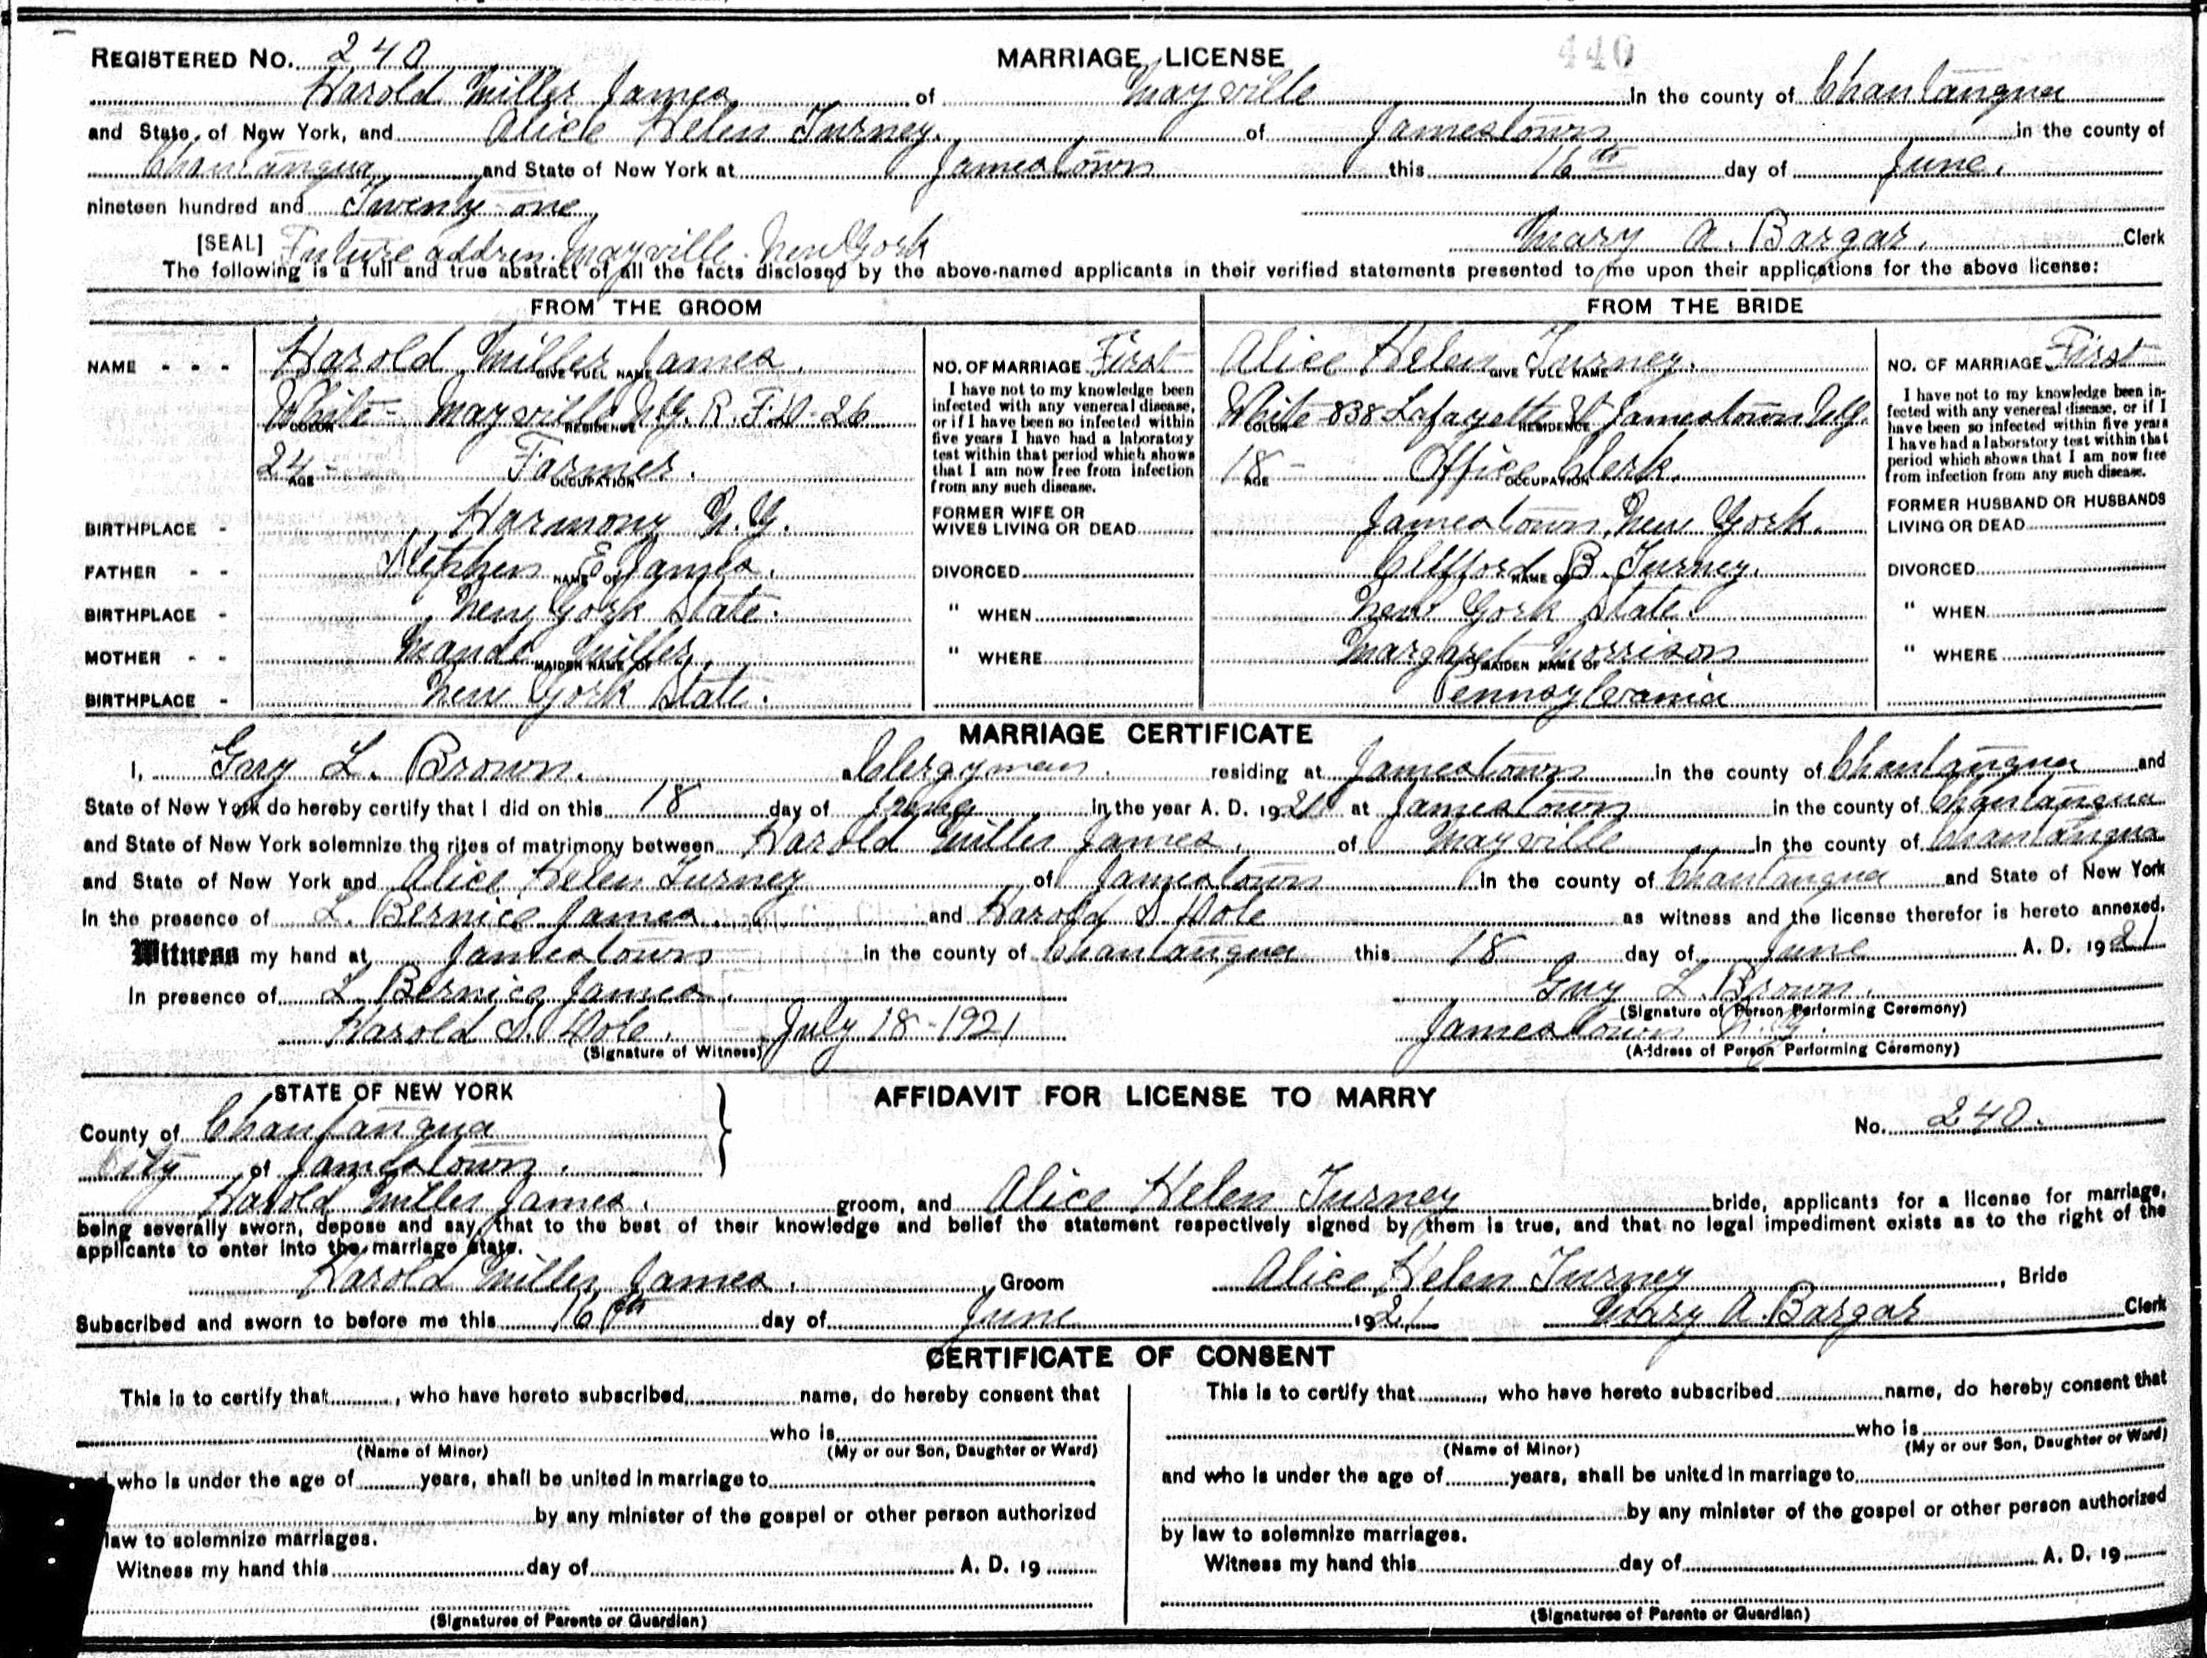 REGISTERED NO. 240 MARRIAGE LICENSE 440
Harold Miller James of Mayville in the county of Chautauqua
and State of New York, and Alice Helen Turney. of Jamestown in the county of
Chautauqua and State of New York at Jamestown this 16th day of June.
nineteen hundred and Twenty-one
[SEAL] Future address. Mayville. New York Mary A. Bargar. Clerk
The following is a full and true abstract of all the facts disclosed by the above-named applicants in their verified statements presented to me upon their applications for the above license:
FROM THE GROOM
NAME - - - Harold Miller James.
GIVE FULL NAME
White - Mayville N.Y. R.F.D. 26
COLOR RESIDENCE
24 - Farmer.
AGE OCCUPATION
BIRTHPLACE - Harmony N.Y.
FATHER - - Stephen E. James.
NAME OF
BIRTHPLACE - New York State.
MOTHER - - Maude Miller.
MAIDEN NAME OF
BIRTHPLACE - New York State.
NO. OF MARRIAGE First
I have not to my knowledge been
infected with any venereal disease,
or if I have been so infected within
five years I have had a laboratory
test within that period which shows
that I am now free from infection
from any such disease.
FORMER WIFE OR
WIVES LIVING OR DEAD
DIVORCED
" WHEN
" WHERE
FROM THE BRIDE
Alice Helen Turney.
GIVE FULL NAME
White 838 Lafayette St Jamestown N.Y.
COLOR RESIDENCE
18 - Office Clerk.
AGE OCCUPATION
Jamestown, New York.
Clifford B. Turney.
NAME OF
New York State.
Margaret Morrison
MAIDEN NAME OF
Pennsylvania
NO. OF MARRIAGE First
I have not to my knowledge been in-
fected with any venereal disease, or if I
have been so infected within five years
I have had a laboratory test within that
period which shows that I am now free
from infection from any such disease.
FORMER HUSBAND OR HUSBANDS
LIVING OR DEAD
DIVORCED
" WHEN
" WHERE
MARRIAGE CERTIFICATE
I, Guy L. Brown. a Clergyman. residing at Jamestown in the county of Chautauqua and
State of New York do hereby certify that I did on this 18 day of June in the year A. D. 1921 at Jamestown in the county of Chautauqua
and State of New York solemnize the rites of matrimony between Harold Miller James. of Mayville in the county of Chautauqua
and State of New York and Alice Helen Turney of Jamestown in the county of Chautauqua and State of New York
in the presence of L. Bernice James and Harold S. Dole as witness and the license therefor is hereto annexed.
Witness my hand at Jamestown in the county of Chautauqua this 18 day of June A. D. 1921
In presence of L. Bernice James. Guy L. Brown.
(Signature of Person Performing Ceremony)
Harold S. Dole. July 18-1921 Jamestown N.Y.
(Signature of Witness) (Address of Person Performing Ceremony)
STATE OF NEW YORK AFFIDAVIT FOR LICENSE TO MARRY
County of Chautauqua No. 240.
City of Jamestown.
Harold Miller James. groom, and Alice Helen Turney bride, applicants for a license for marriage,
being severally sworn, depose and say, that to the best of their knowledge and belief the statement respectively signed by them is true, and that no legal impediment exists as to the right of the
applicants to enter into the marriage state.
Harold Miller James. Groom Alice Helen Turney, Bride
Subscribed and sworn to before me this 16th day of June 1921 Mary A. Bargar Clerk
CERTIFICATE OF CONSENT
This is to certify that , who have hereto subscribed name, do hereby consent that
who is
(Name of Minor) (My or our Son, Daughter or Ward)
and who is under the age of years, shall be united in marriage to
by any minister of the gospel or other person authorized
law to solemnize marriages.
Witness my hand this day of A. D. 19
(Signatures of Parents or Guardian)
This is to certify that , who have hereto subscribed name, do hereby consent that
who is
(Name of Minor) (My or our Son, Daughter or Ward)
and who is under the age of years, shall be united in marriage to
by any minister of the gospel or other person authorized
by law to solemnize marriages.
Witness my hand this day of A. D. 19
(Signatures of Parents or Guardian)